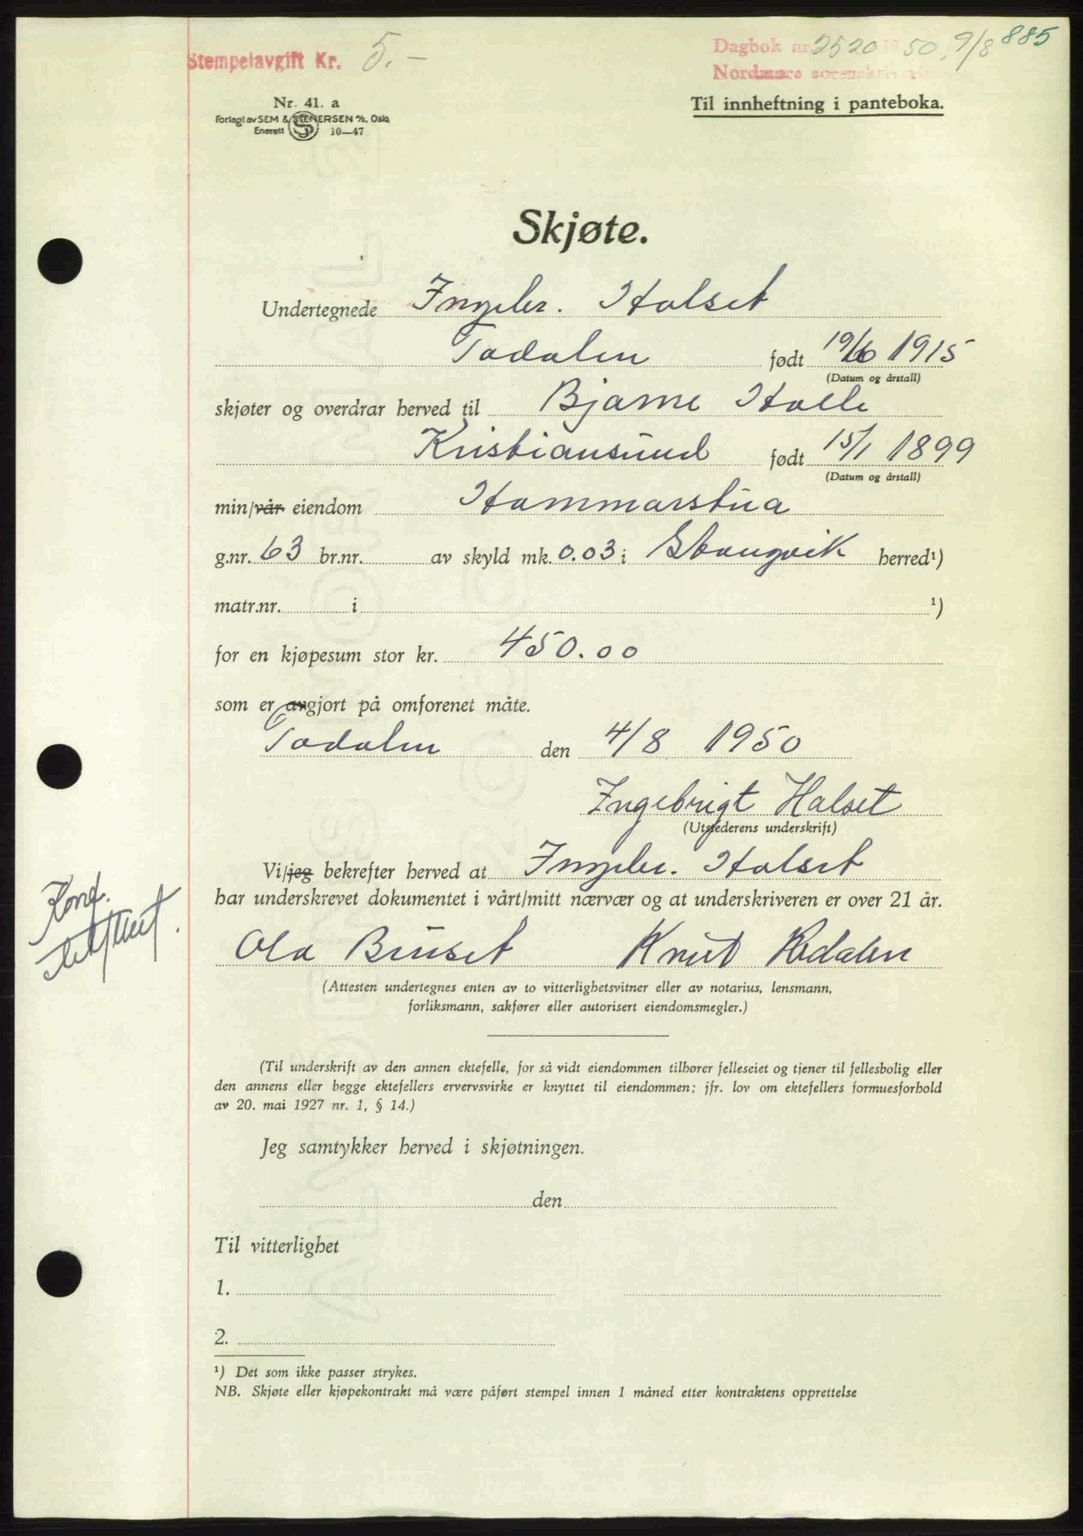 Stempelavgift Kr. 5.-
Dagbok nr. 2520 1950, 9/8 885
Nordmøre sorenskriveri
Nr. 41. a
Forlagt av SEM & STENERSEN A/S, Oslo
Enerett S 10—47
Til innheftning i panteboka.
Skjøte.
Undertegnede Ingebr. Halset
Todalen født 19/6 1915
(Datum og årstall)
skjøter og overdrar herved til Bjarne Halle
Kristiansund født 15/1 1899
(Datum og årstall)
min/vår eiendom Hammarstua
g.nr. 63 br.nr. av skyld mk. 0.03 i Stangvik herred¹)
matr.nr. i ¹)
for en kjøpesum stor kr. 450.00
som er avgjort på omforenet måte.
Todalen den 4/8 1950
Ingebrigt Halset
(Utstederens underskrift)
Vi/jeg bekrefter herved at Ingebr. Halset
har underskrevet dokumentet i vårt/mitt nærvær og at underskriveren er over 21 år.
Ola Bruset Knut Redalen
(Attesten undertegnes enten av to vitterlighetsvitner eller av notarius, lensmann,
forliksmann, sakfører eller autorisert eiendomsmegler.)
Konf.
(Til underskrift av den annen ektefelle, for så vidt eiendommen tilhører felleseiet og tjener til fellesbolig eller
den annens eller begge ektefellers ervervsvirke er knyttet til eiendommen; jfr. lov om ektefellers formuesforhold
av 20. mai 1927 nr. 1, § 14.)
Jeg samtykker herved i skjøtningen.
den
Til vitterlighet
1.
2.
¹) Det som ikke passer strykes.
NB. Skjøte eller kjøpekontrakt må være påført stempel innen 1 måned etter kontraktens opprettelse